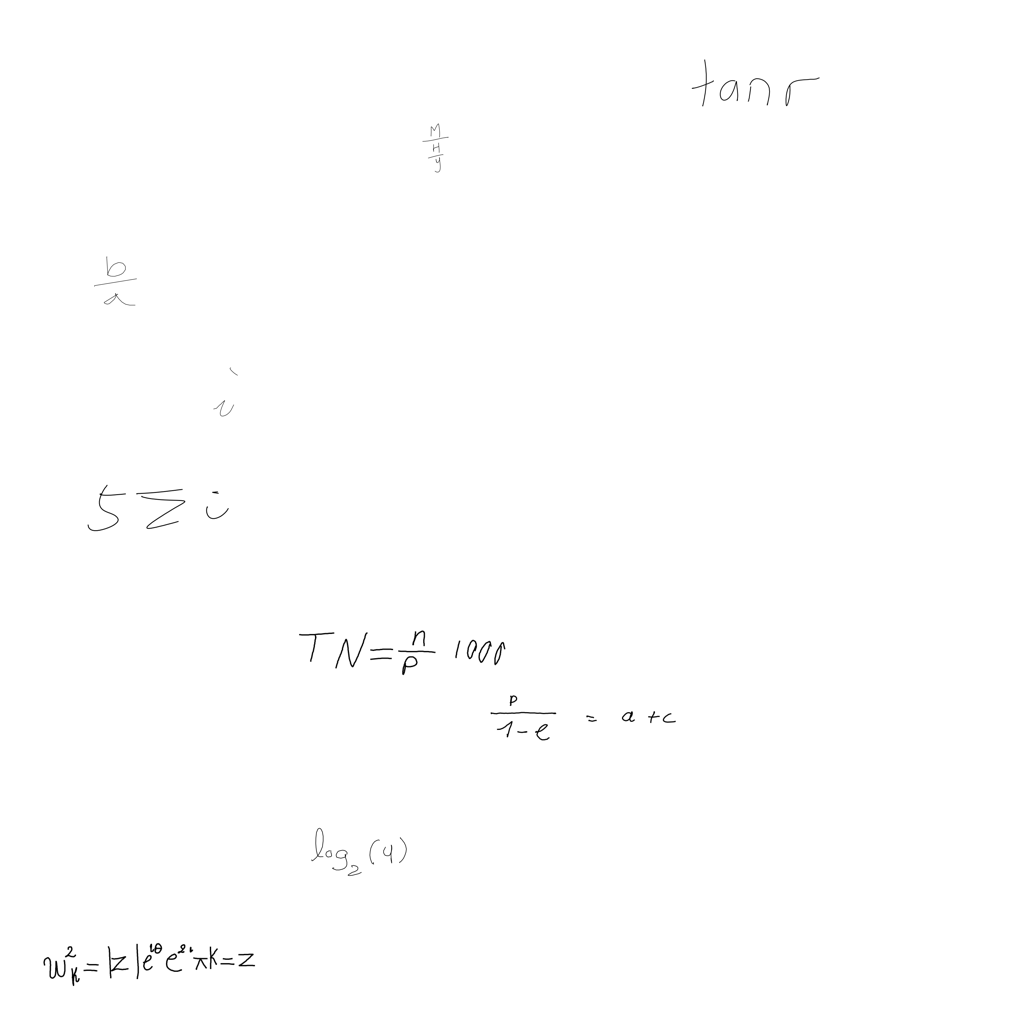 tan r
M/(H/y)
b/a
i
5 Σ i
TN = n/p 1000
p/(1-e) = a + c
log₂(4)
w_k^2 = |z| e^{iθ} e^{2i} πk = z